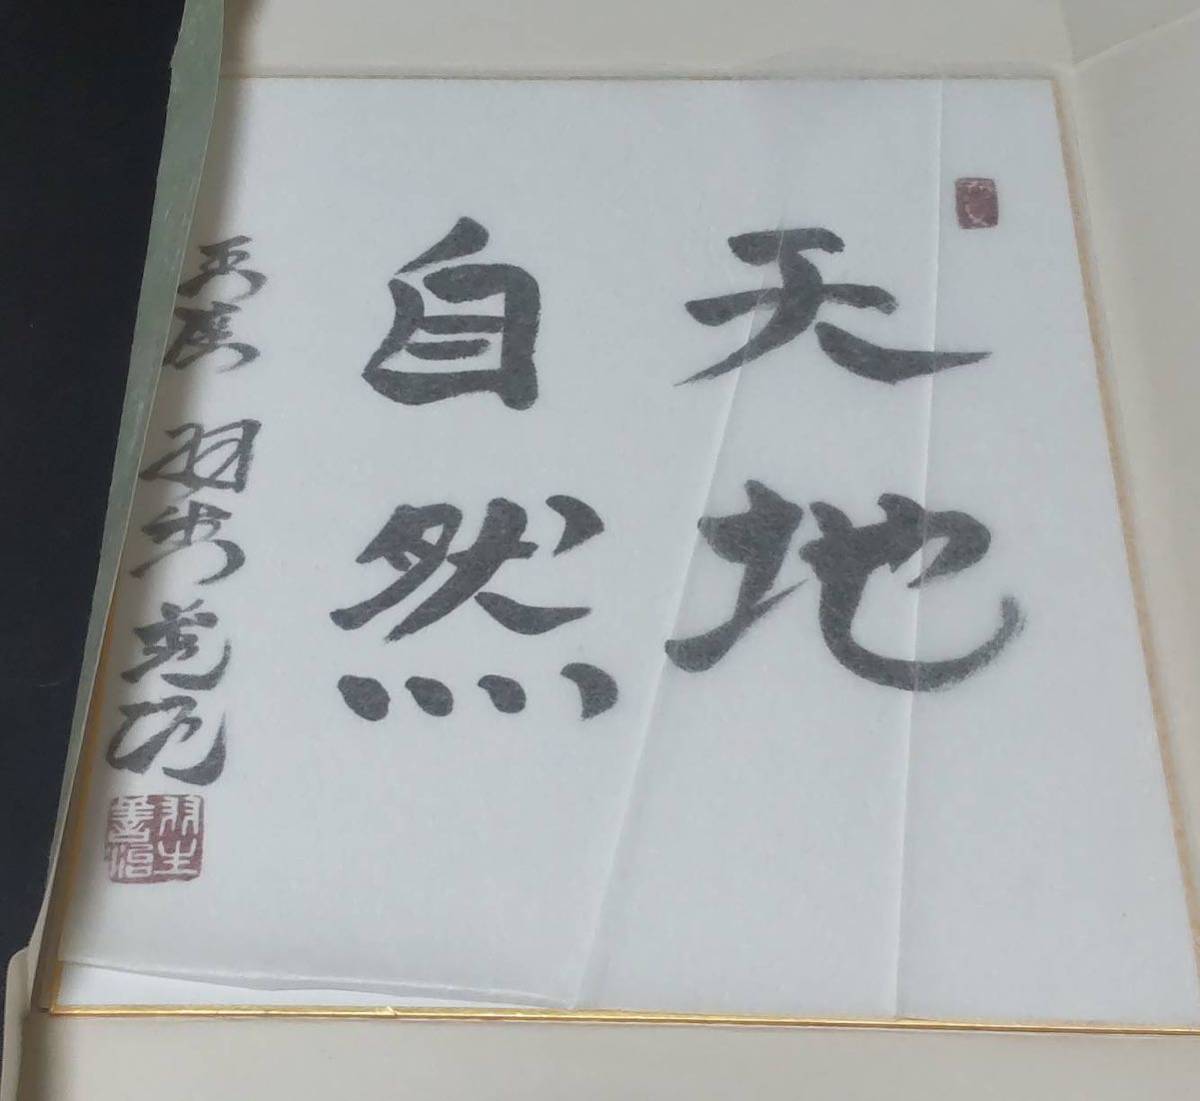 天地
自然
王座 羽生善治
羽生
善治